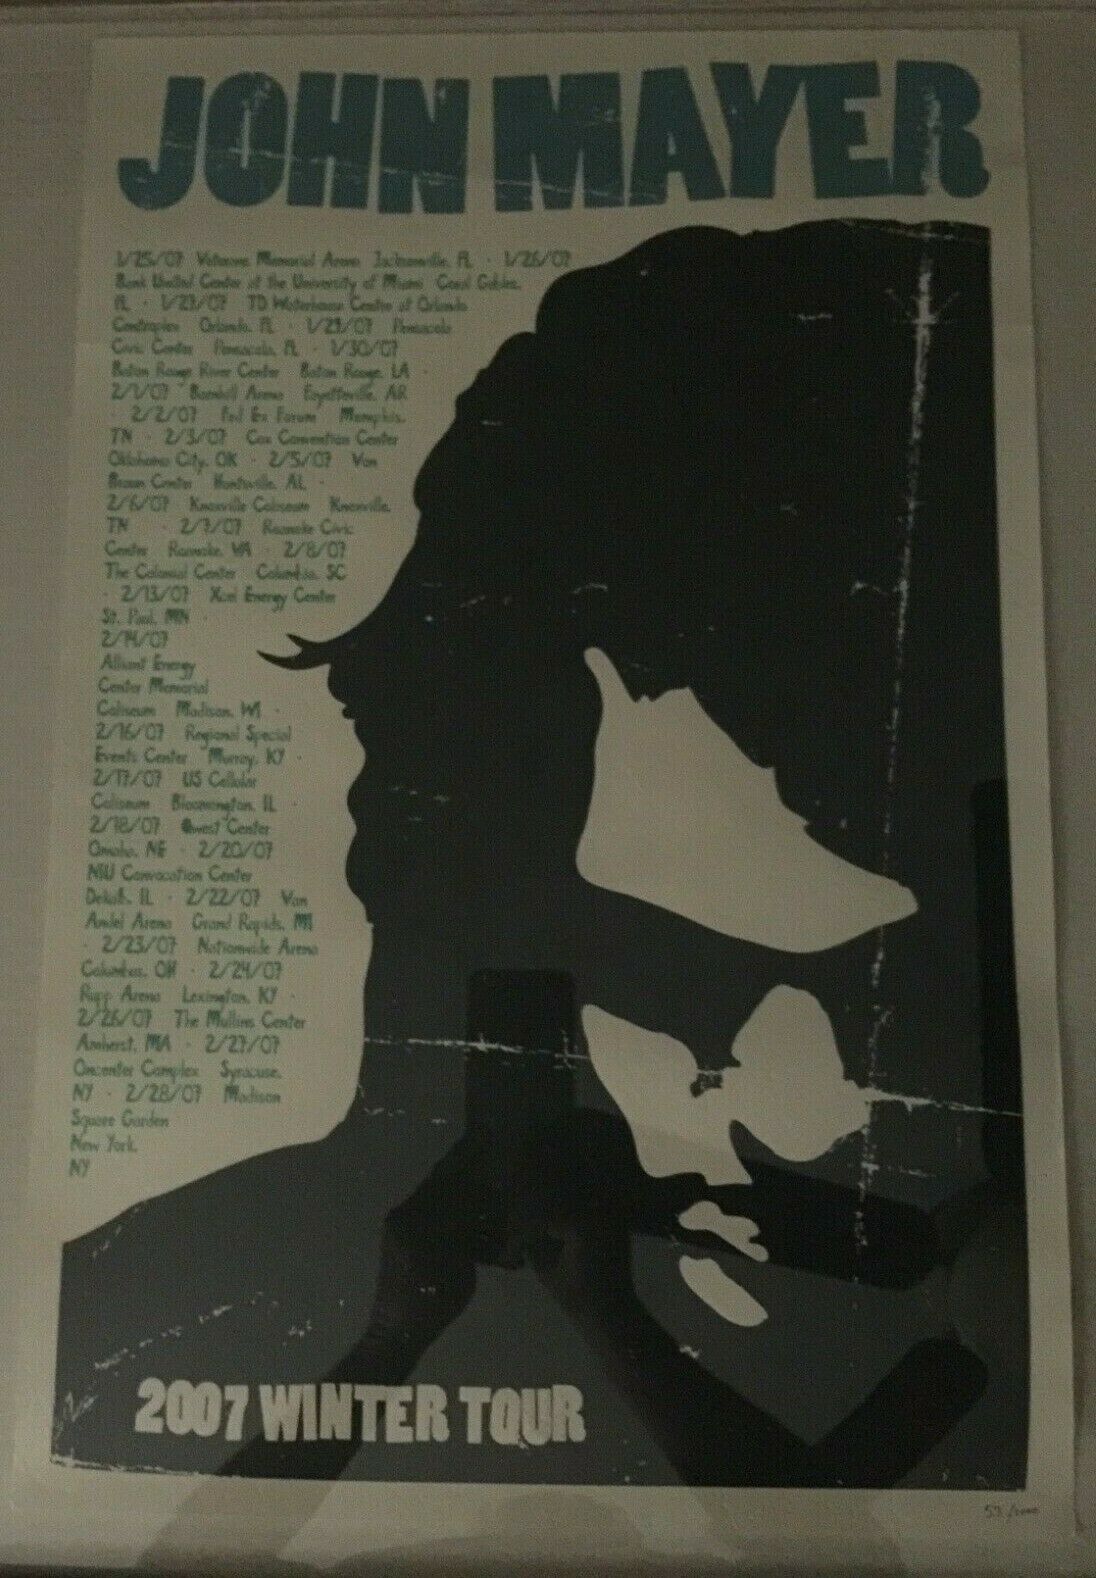 JOHN MAYER
1/25/07 Veterans Memorial Arena Jacksonville, FL · 1/26/07
Bank United Center at the University of Miami Coral Gables,
FL · 1/27/07 TD Waterhouse Center at Orlando
Centroplex Orlando, FL · 1/29/07 Pensacola
Civic Center Pensacola, FL · 1/30/07
Baton Rouge River Center Baton Rouge, LA ·
2/1/07 Barnhill Arena Fayetteville, AR
· 2/2/07 Fed Ex Forum Memphis,
TN · 2/3/07 Cox Convention Center
Oklahoma City, OK · 2/5/07 Von
Braun Center Huntsville, AL ·
2/6/07 Knoxville Coliseum Knoxville,
TN · 2/7/07 Roanoke Civic
Center Roanoke, VA · 2/8/07
The Colonial Center Columbia, SC
· 2/13/07 Xcel Energy Center
St. Paul, MN ·
2/14/07
Alliant Energy
Center Memorial
Coliseum Madison, WI ·
2/16/07 Regional Special
Events Center Murray, KY ·
2/17/07 US Cellular
Coliseum Bloomington, IL ·
2/18/07 Qwest Center
Omaha, NE · 2/20/07
NIU Convocation Center
Dekalb, IL · 2/22/07 Van
Andel Arena Grand Rapids, MI
· 2/23/07 Nationwide Arena
Columbus, OH · 2/24/07
Rupp Arena Lexington, KY ·
2/26/07 The Mullins Center
Amherst, MA · 2/27/07
Oncenter Complex Syracuse,
NY · 2/28/07 Madison
Square Garden
New York,
NY
2007 WINTER TOUR